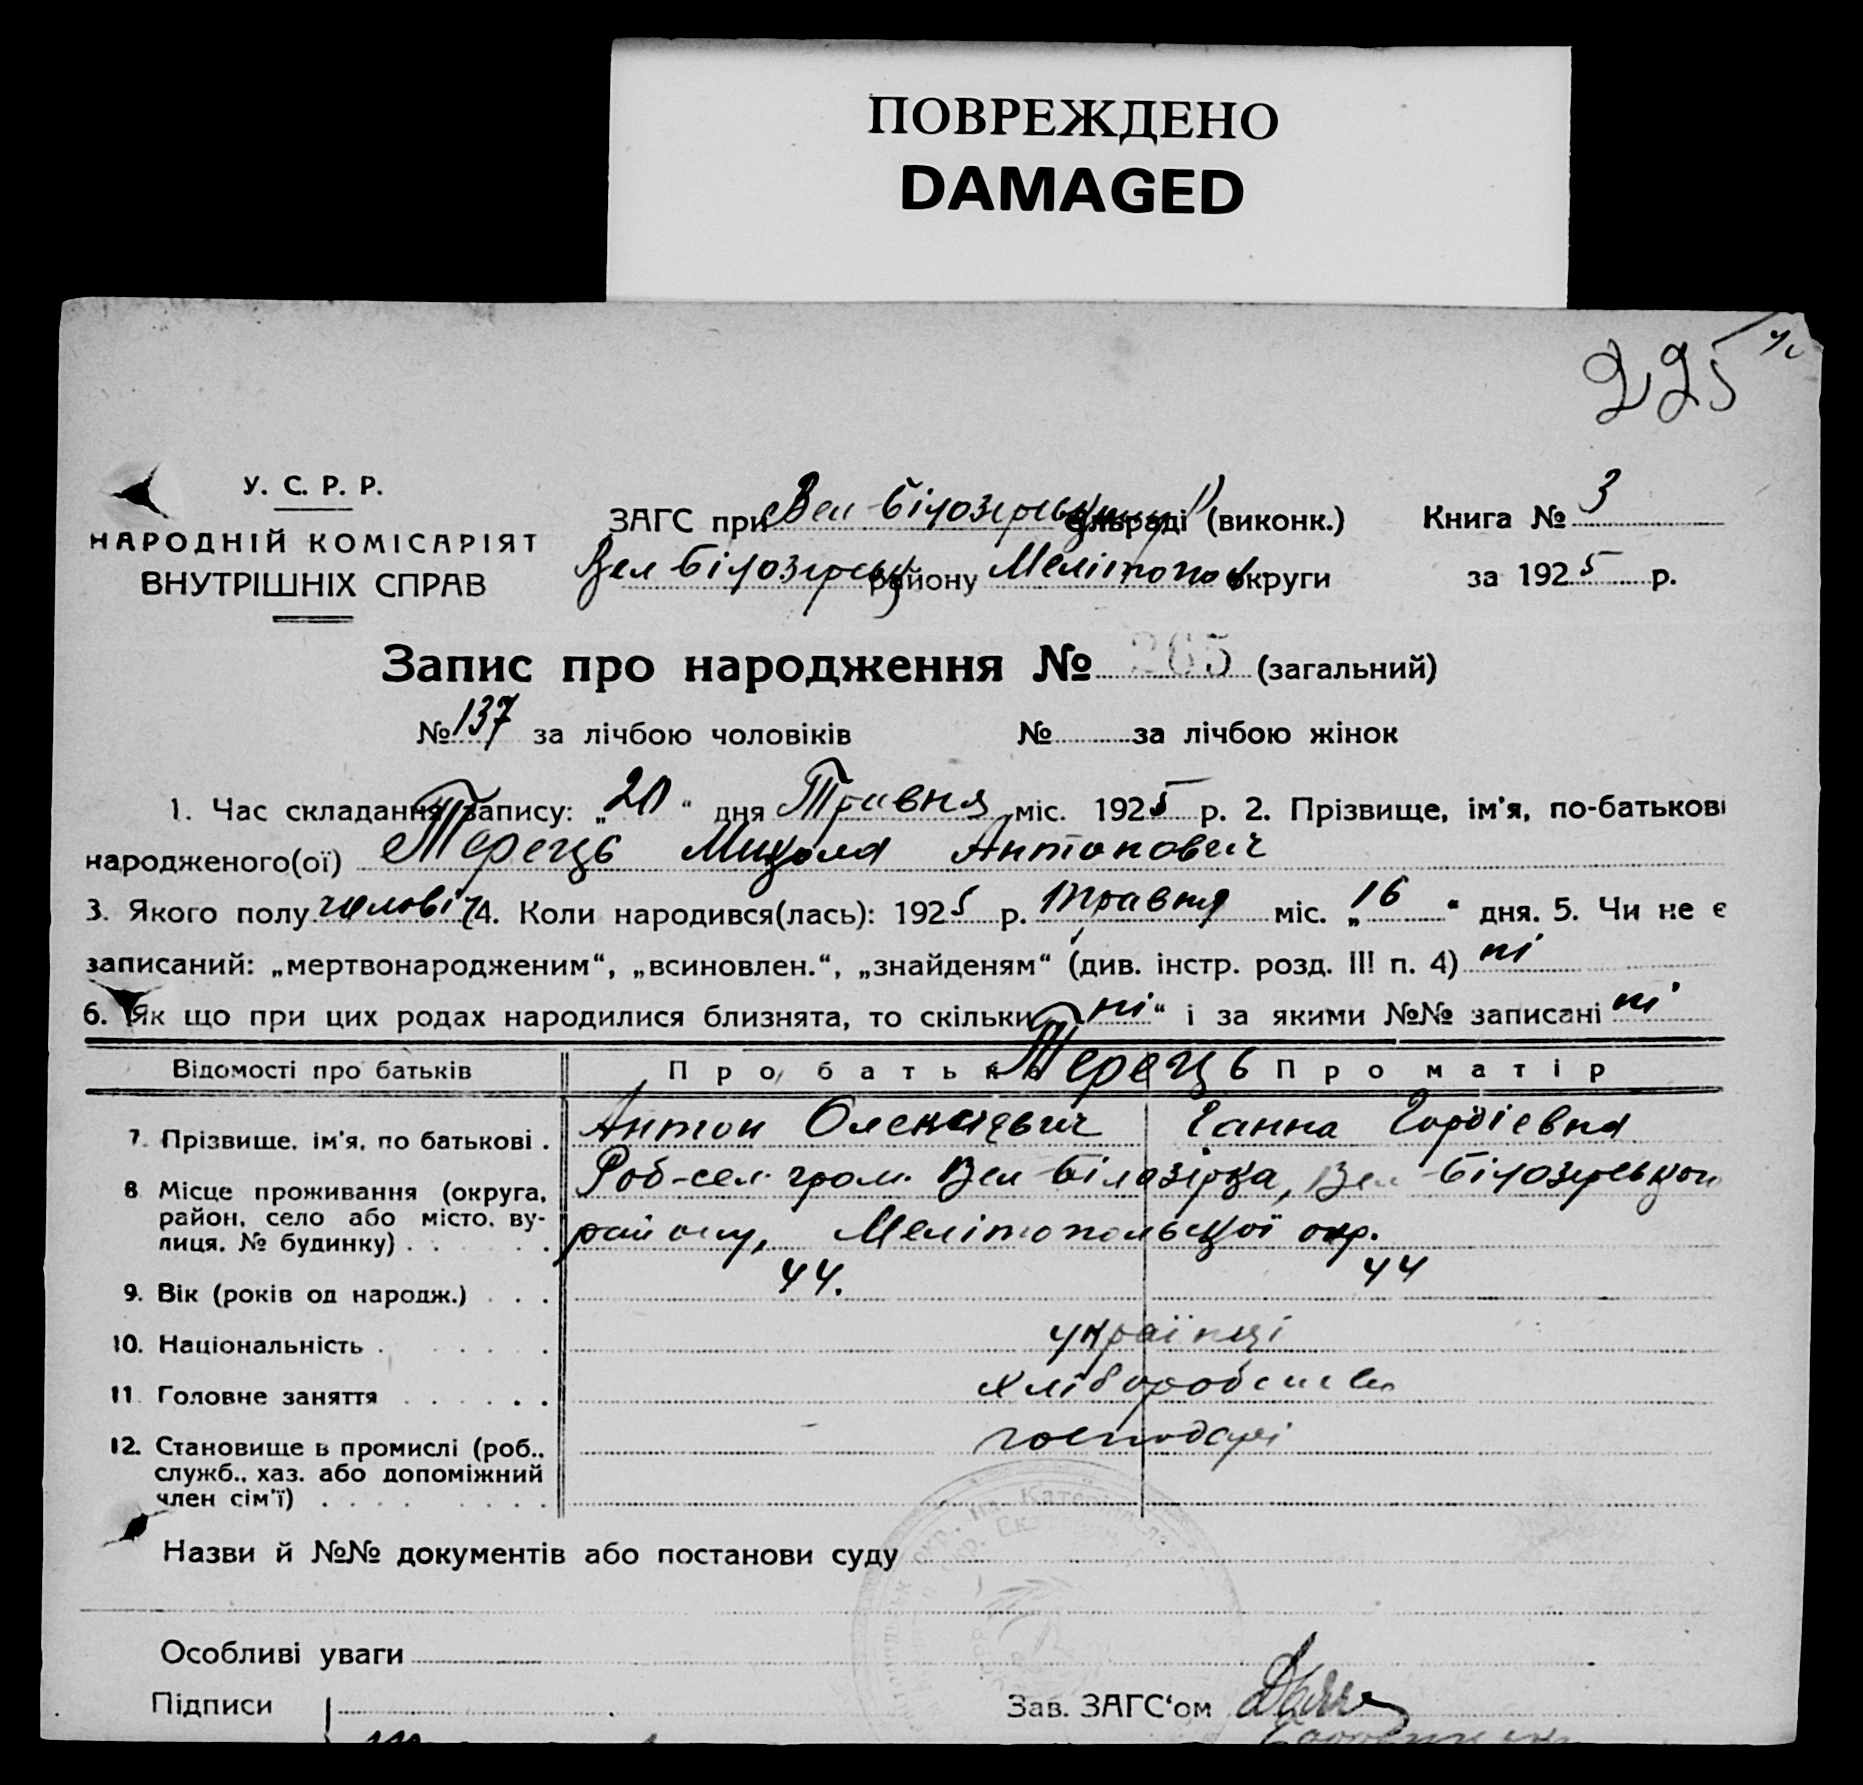 ПОВРЕЖДЕНО
DAMAGED
225
У. С. Р. Р.
НАРОДНІЙ КОМІСАРІЯТ
ВНУТРІШНІХ СПРАВ
ЗАГС при Вел Білозірськім сільраді (виконк.) Книга № 3
Вел Білозірськ району Мелітопо округи за 1925 р.
Запис про народження № 265 (загальний)
№ 137 за лічбою чоловіків № за лічбою жінок
1. Час складання запису: „20“ дня Травня міс. 1925 р. 2. Прізвище, ім'я, по-батькові
народженого(ої) Терець Микола Антонович
3. Якого полу чоловіч 4. Коли народився(лась): 1925 р. травня міс. „16“ дня. 5. Чи не є
записаний: „мертвонародженим“, „всиновлен.“, „знайденям“ (див. інстр. розд. III п. 4) ні
6. Як що при цих родах народилися близнята, то скільки „ні“ і за якими №№ записані ні
Відомості про батьків Про батька Про матір
Терець
7. Прізвище, ім'я, по батькові . Антон Олексієвич Ганна Гордієвна
8 Місце проживання (округа, район, село або місто, вулиця, № будинку) . Роб-сел. гром. Вел Білозірка, Вел Білозірського
району, Мелітопольської окр.
9. Вік (років од народж.) . . . 44. 44
10. Національність . українці
11 Головне заняття хлібороб
12. Становище в промислі (роб., служб., хаз. або допоміжний член сім'ї) господарі
Назви й №№ документів або постанови суду
Особливі уваги
Підписи Зав. ЗАГС'ом